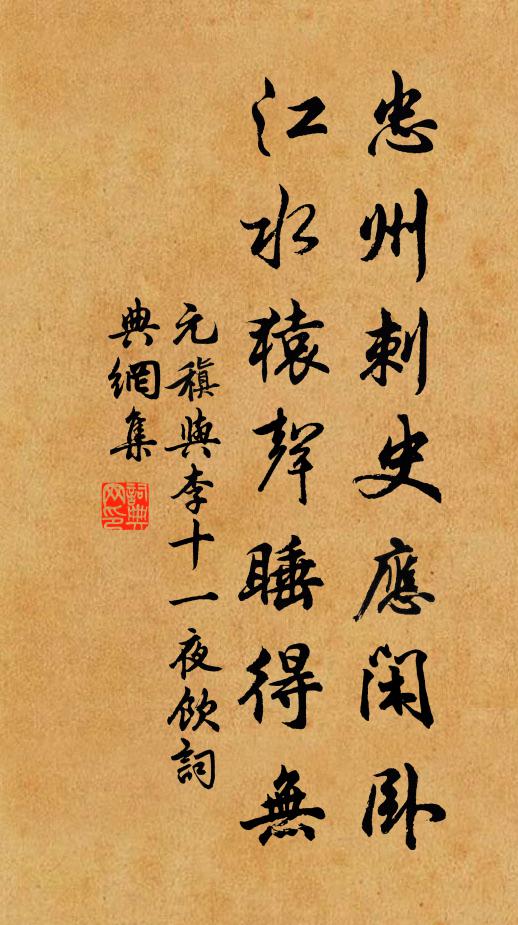 忠州刺史應閑臥
江水猿聲睡得無
元稹與李十一夜飲詞
典網集
詞典
网印